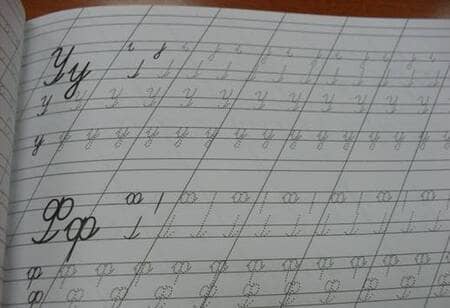 Уу
У У У У У У У У У У У У
у у у у у у у у у у у у у у у
Фф
ф ф ф ф ф ф ф ф ф ф ф ф